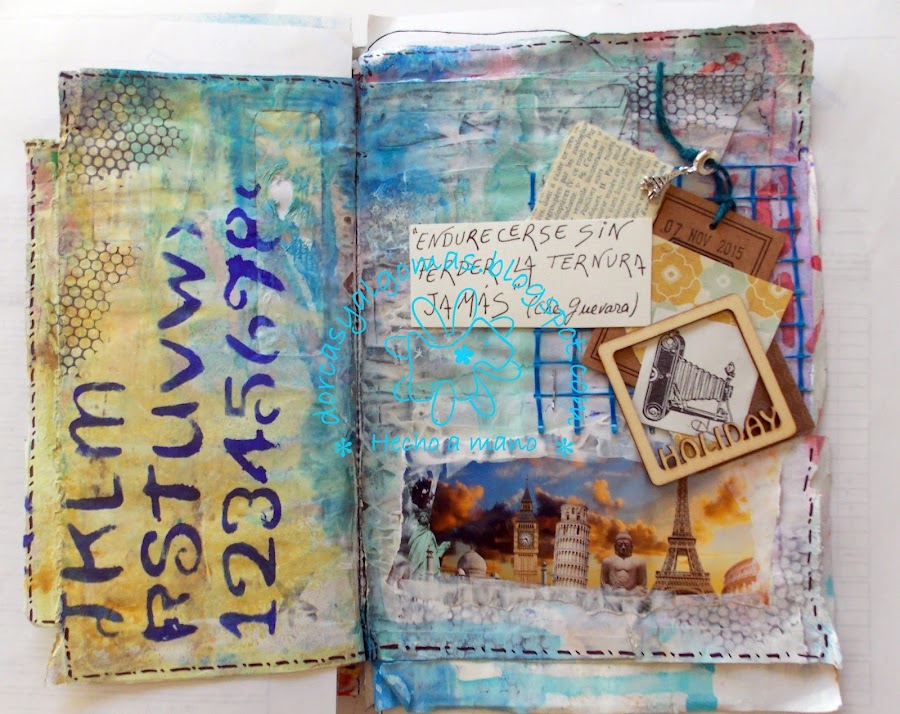 JKLM
RSTUVW
1234567890
"ENDURECERSE SIN
PERDER LA TERNURA
JAMÁS" (Che Guevara)
07 NOV 2015
HOLIDAY
dorcasyalgomas.blogspot.com
* Hecho a mano *